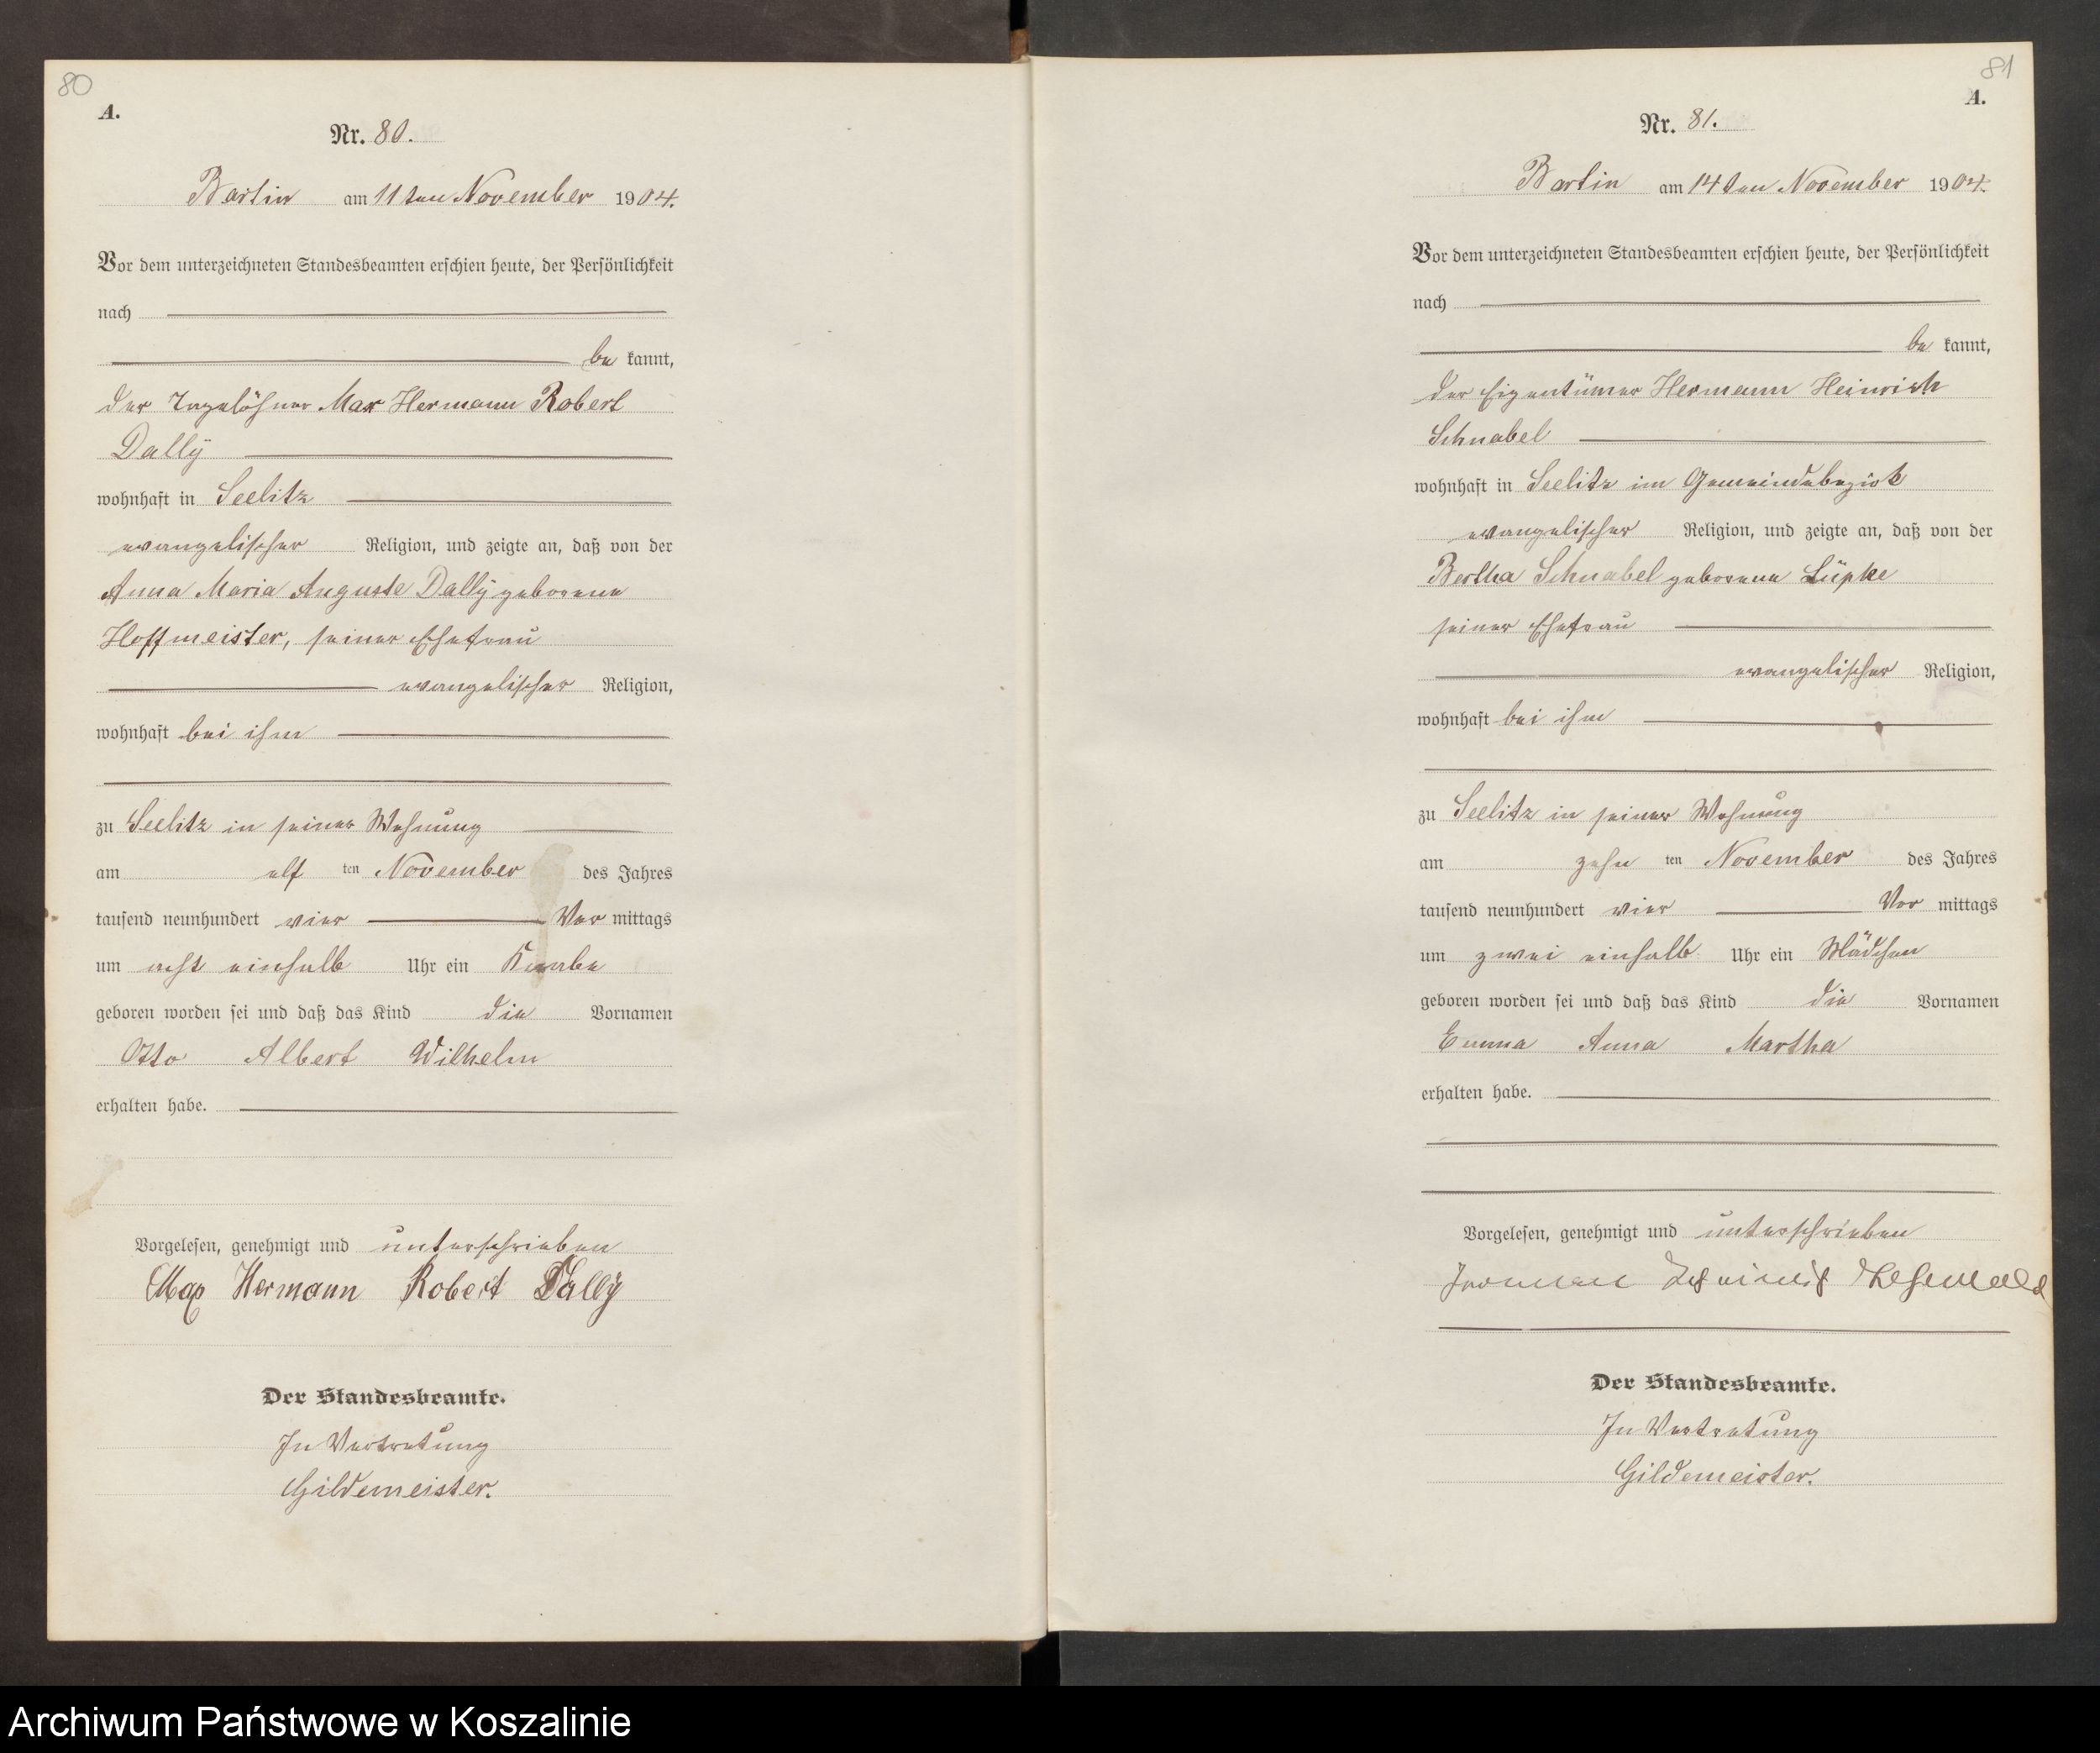 80
A.
Nr. 80.
Bartin am 11ten November 1904.
Vor dem unterzeichneten Standesbeamten erschien heute, der Persönlichkeit
nach
be kannt,
der Tagelöhner Max Hermann Robert
Dally
wohnhaft in Seelitz
evangelischer Religion, und zeigte an, daß von der
Anna Maria Auguste Dally geborene
Hoffmeister, seiner Ehefrau
evangelischer Religion,
wohnhaft bei ihm
zu Seelitz in seiner Wohnung
am elf ten November des Jahres
tausend neunhundert vier Vor mittags
um acht einhalb Uhr ein Knabe
geboren worden sei und daß das Kind die Vornamen
Otto Albert Wilhelm
erhalten habe.
Vorgelesen, genehmigt und unterschrieben
Max Hermann Robert Dally
Der Standesbeamte.
In Vertretung
Gildemeister.
81
A.
Nr. 81.
Bartin am 14ten November 1904.
Vor dem unterzeichneten Standesbeamten erschien heute, der Persönlichkeit
nach
be kannt,
der Eigentümer Hermann Heinrich
Schnabel
wohnhaft in Seelitz im Gemeindebezirk
evangelischer Religion, und zeigte an, daß von der
Bertha Schnabel geborene Lüpke
seiner Ehefrau
evangelischer Religion,
wohnhaft bei ihm
zu Seelitz in seiner Wohnung
am zehn ten November des Jahres
tausend neunhundert vier Vor mittags
um zwei einhalb Uhr ein Mädchen
geboren worden sei und daß das Kind die Vornamen
Emma Anna Martha
erhalten habe.
Vorgelesen, genehmigt und unterschrieben
Der Standesbeamte.
In Vertretung
Gildemeister.
Archiwum Państwowe w Koszalinie